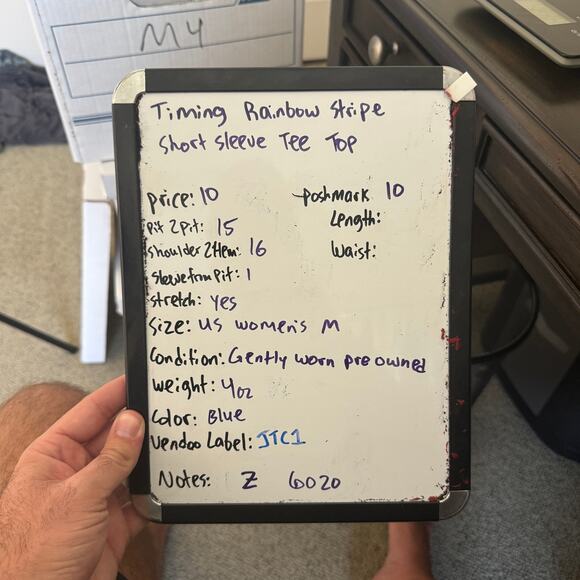 M4
Timing Rainbow Stripe
Short Sleeve Tee Top
Price: 10
Poshmark 10
Pit 2 Pit: 15
Length:
Shoulder 2 Hem: 16
Waist:
Sleeve from Pit: 1
Stretch: Yes
Size: US women's M
Condition: Gently worn pre owned
Weight: 4oz
Color: Blue
Vendoo Label: JTC1
Notes: Z 6020